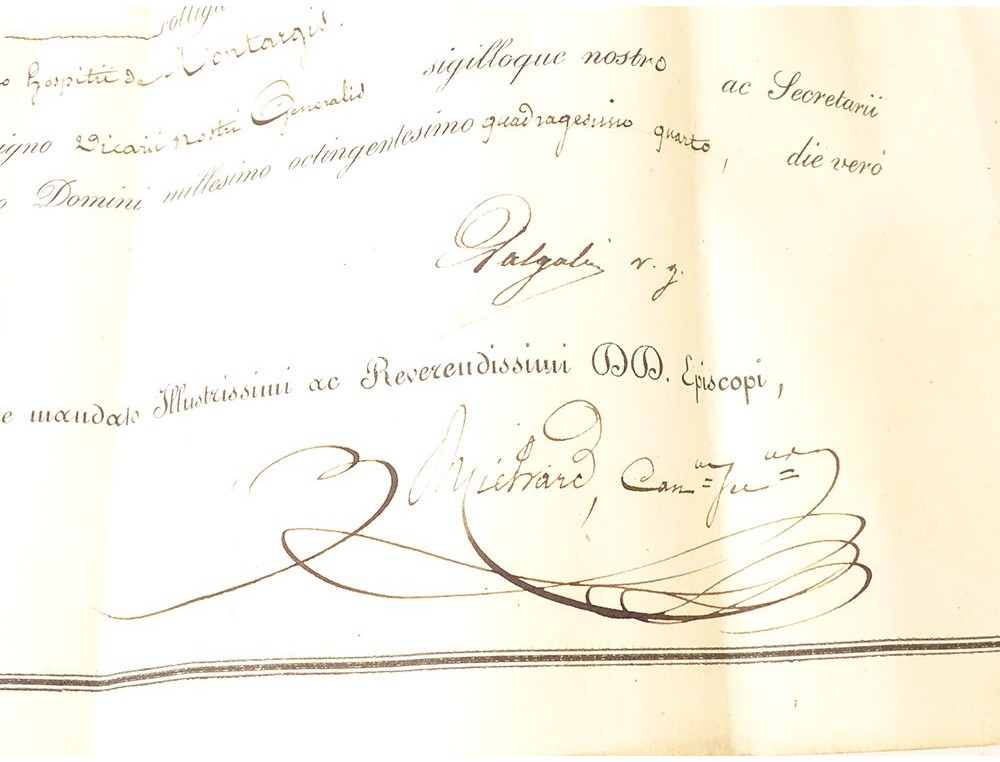 colliga
o hospitii de Montargis.
igno Vicarii nostri Generalis sigilloque nostro ac Secretarii
o Domini millesimo octingentesimo quadragesimo quarto, die verò
v. g.
e mandato Illustrissimi ac Reverendissimi DD. Episcopi,
Can.